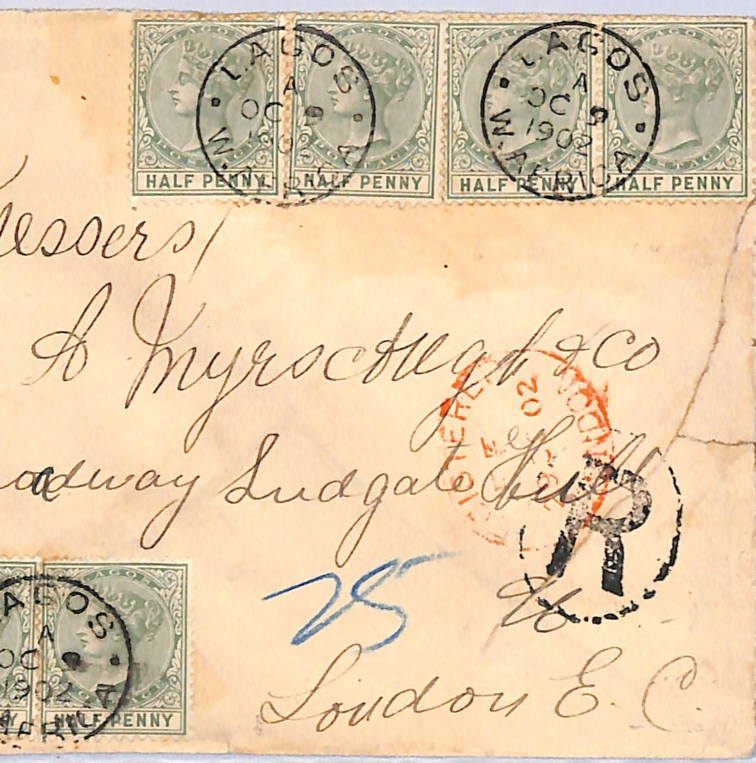 LAGOS LAGOS
A A
OC 9 OC 9
1902
W. AFRICA W. AFRICA
HALF PENNY HALF PENNY HALF PENNY HALF PENNY
Messers
A
& Co
REGISTERED LONDON
02
adway Ludgate Hill
R
25
London E. C.
LAGOS
A
OC 9
1902
HALF PENNY